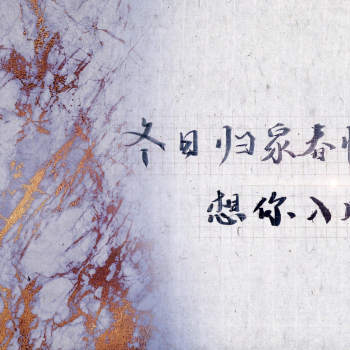 冬日归泉春
想你入